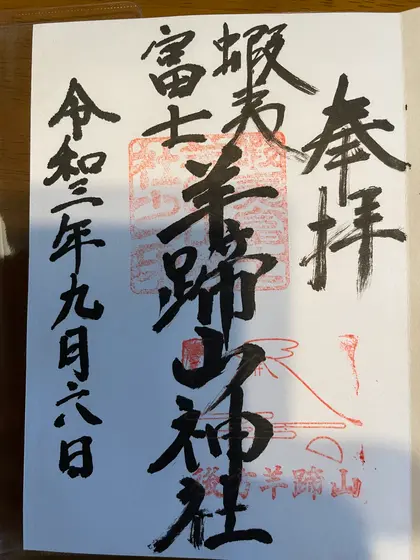 奉拝
蝦夷
富士
羊蹄山神社
令和三年九月六日
後方羊蹄山